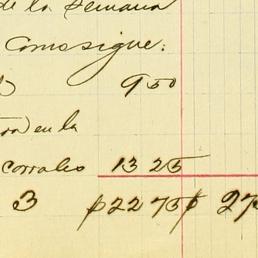 de la semana
Como sigue:
9 50
en la
corrales 13 25
3 $22 75 $ 27